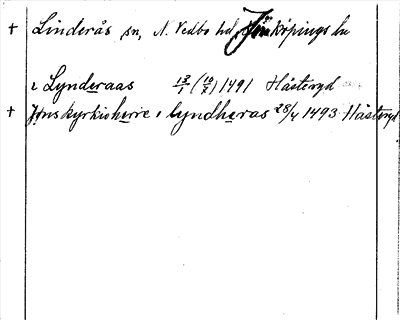 + Linderås sn, N. Vedbo hd, Jönköpings län
i Lynderaas 13/1 (10/2) 1491 Hästeryd
+ sognskyrkioherre i lyndheras 28/4 1493 Hästeryd